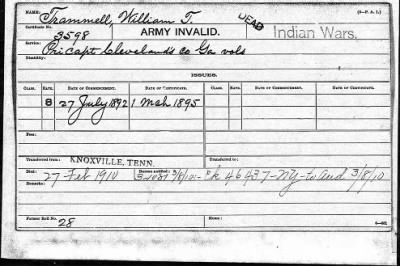 Name: Trammell, William T. (3—P. A. I.)
Certificate No. 3598 ARMY INVALID. DEAD Indian Wars.
Service: Pri Capt Cleveland's co Ga vols
Disability:
ISSUES.
CLASS. RATE. DATE OF COMMENCEMENT. DATE OF CERTIFICATE. CLASS. RATE. DATE OF COMMENCEMENT. DATE OF CERTIFICATE.
8 27 July 1892 1 Mch 1895
Fee:
Transferred from: KNOXVILLE, TENN. Transferred to:
Died: 27 Feb 1910 3/8/10
Remarks:
Former Roll No. 28 Home: